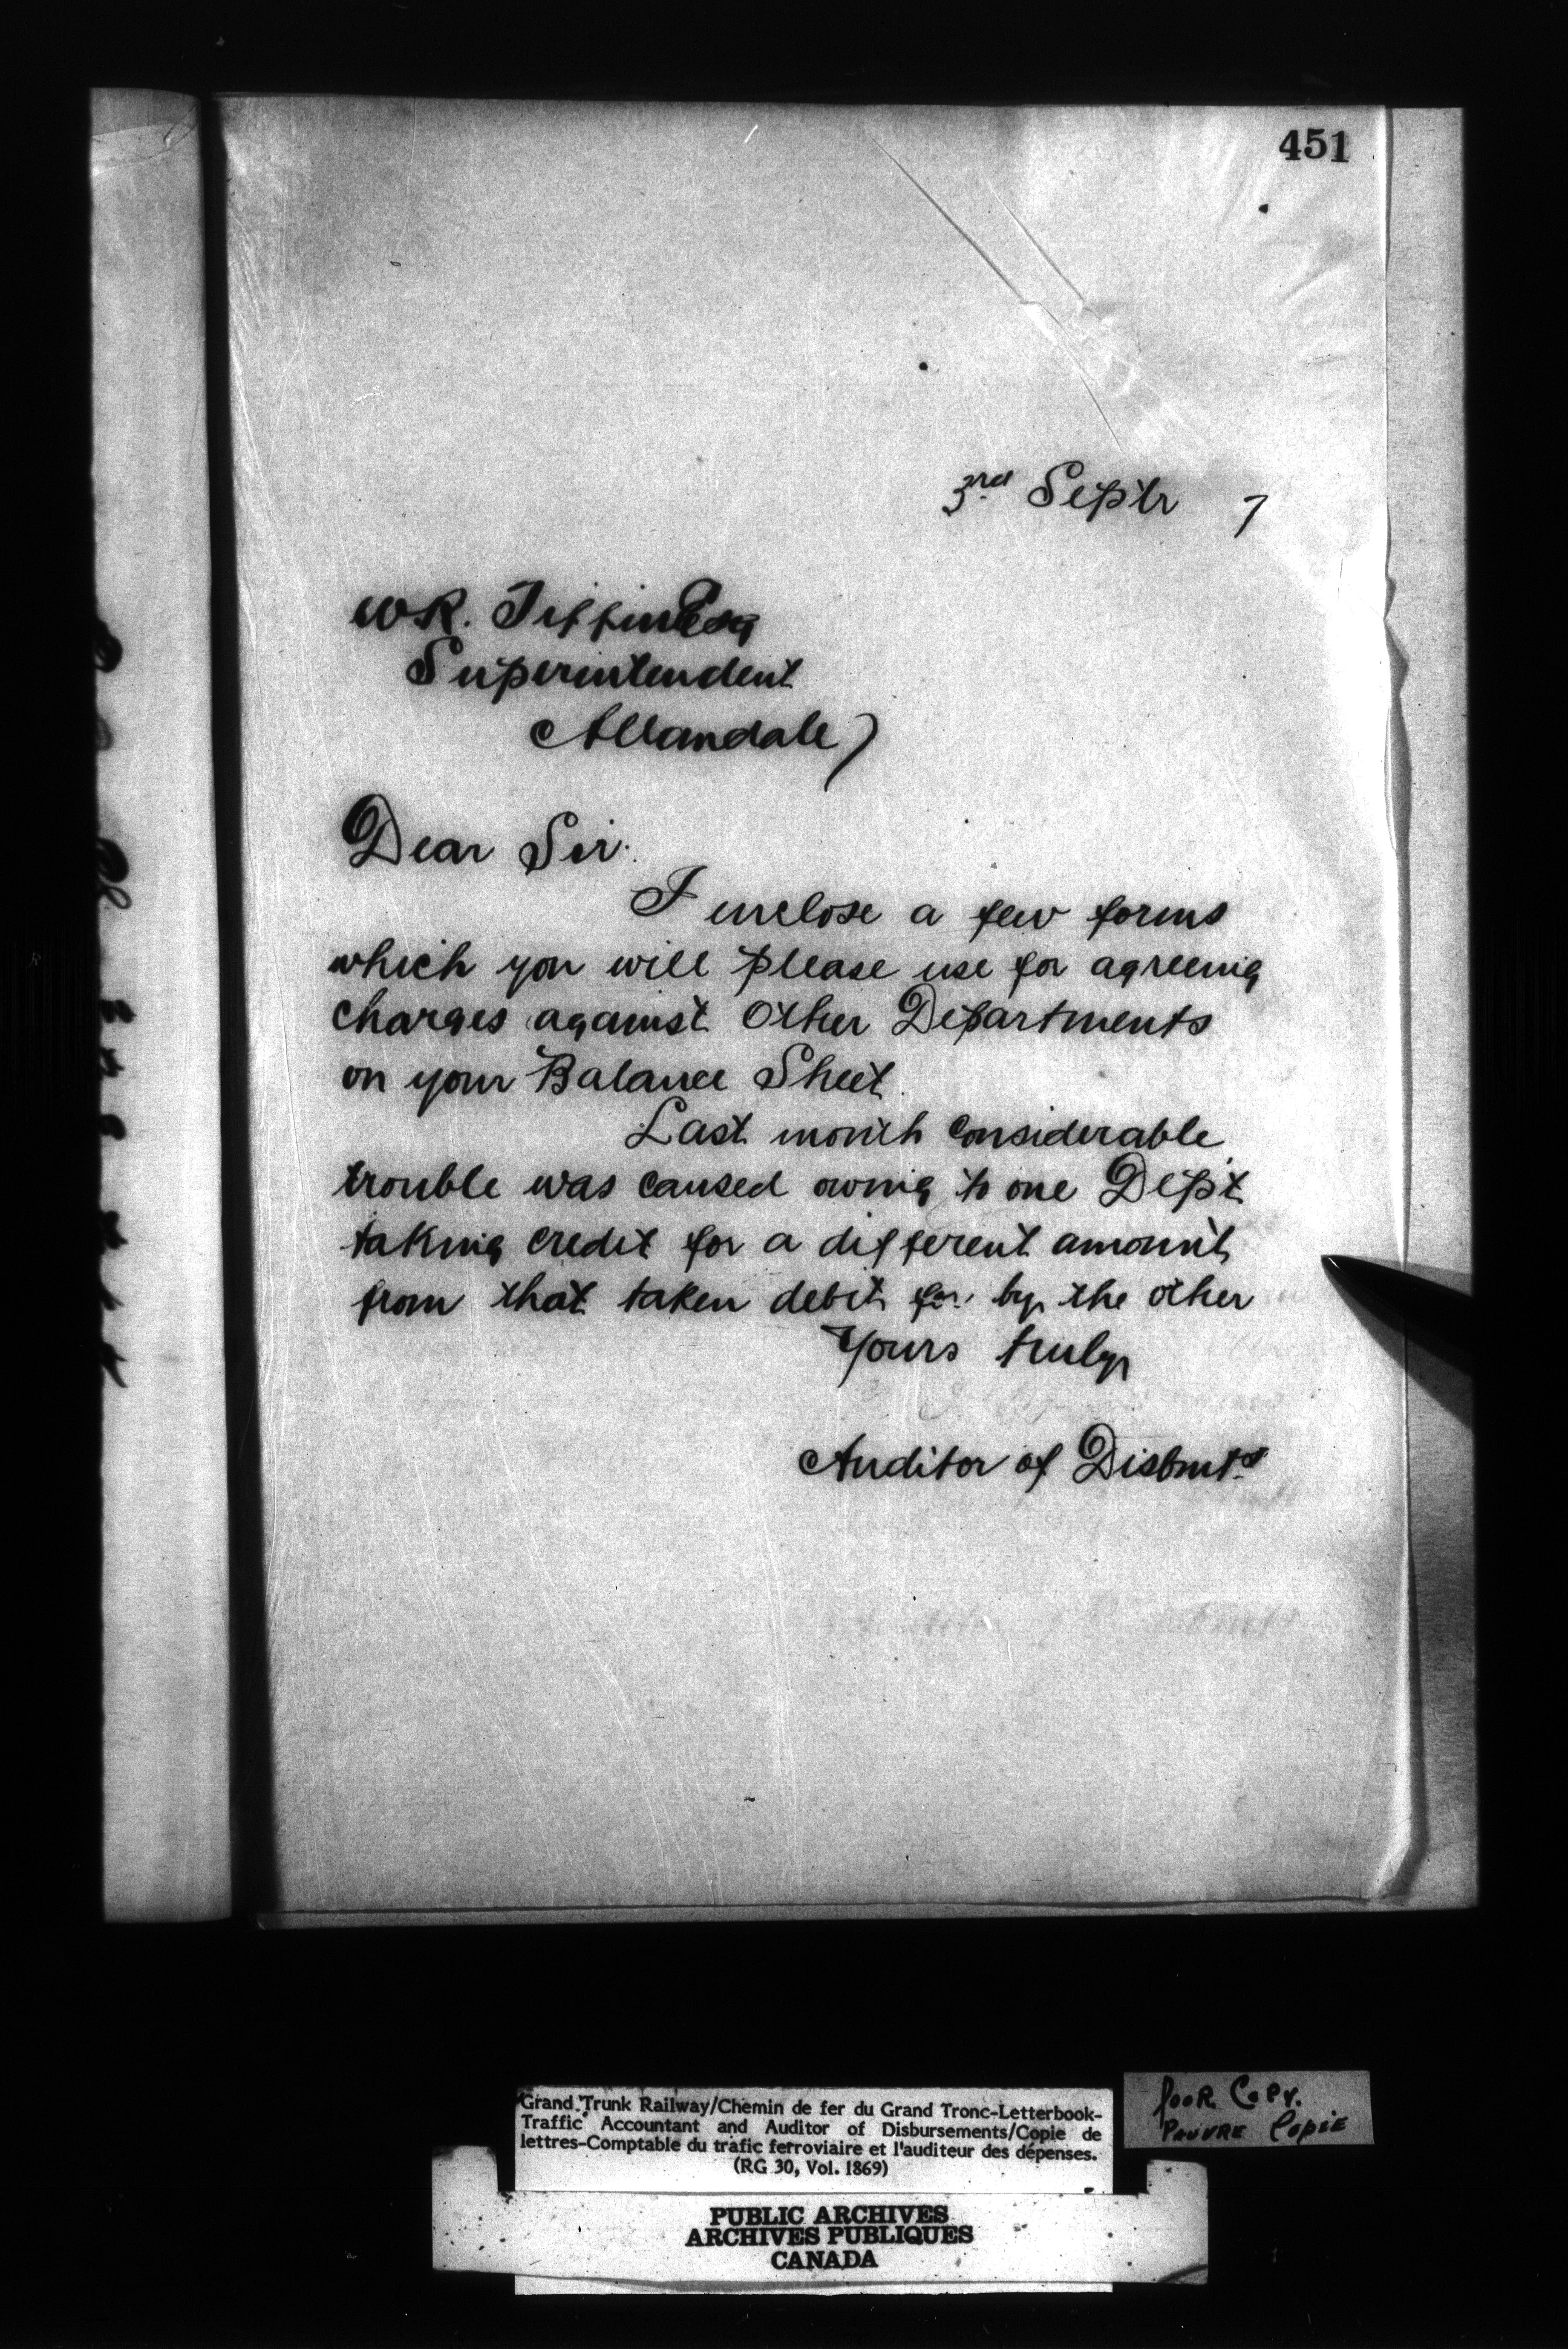 451
3rd Septr 7
W R. Tiffin Esq
Superintendent
Allandale
Dear Sir.
I enclose a few forms
which you will please use for agreeing
charges against Other Departments
on your Balance Sheet.
Last month considerable
trouble was caused owing to one Dept.
taking credit for a different amount
from that taken debit for by the other
Yours truly
Auditor of Disbmts
Grand Trunk Railway/Chemin de fer du Grand Tronc-Letterbook-
Traffic Accountant and Auditor of Disbursements/Copie de
lettres-Comptable du trafic ferroviaire et l'auditeur des dépenses.
(RG 30, Vol. 1869)
Poor Copy.
Pauvre Copie
PUBLIC ARCHIVES
ARCHIVES PUBLIQUES
CANADA